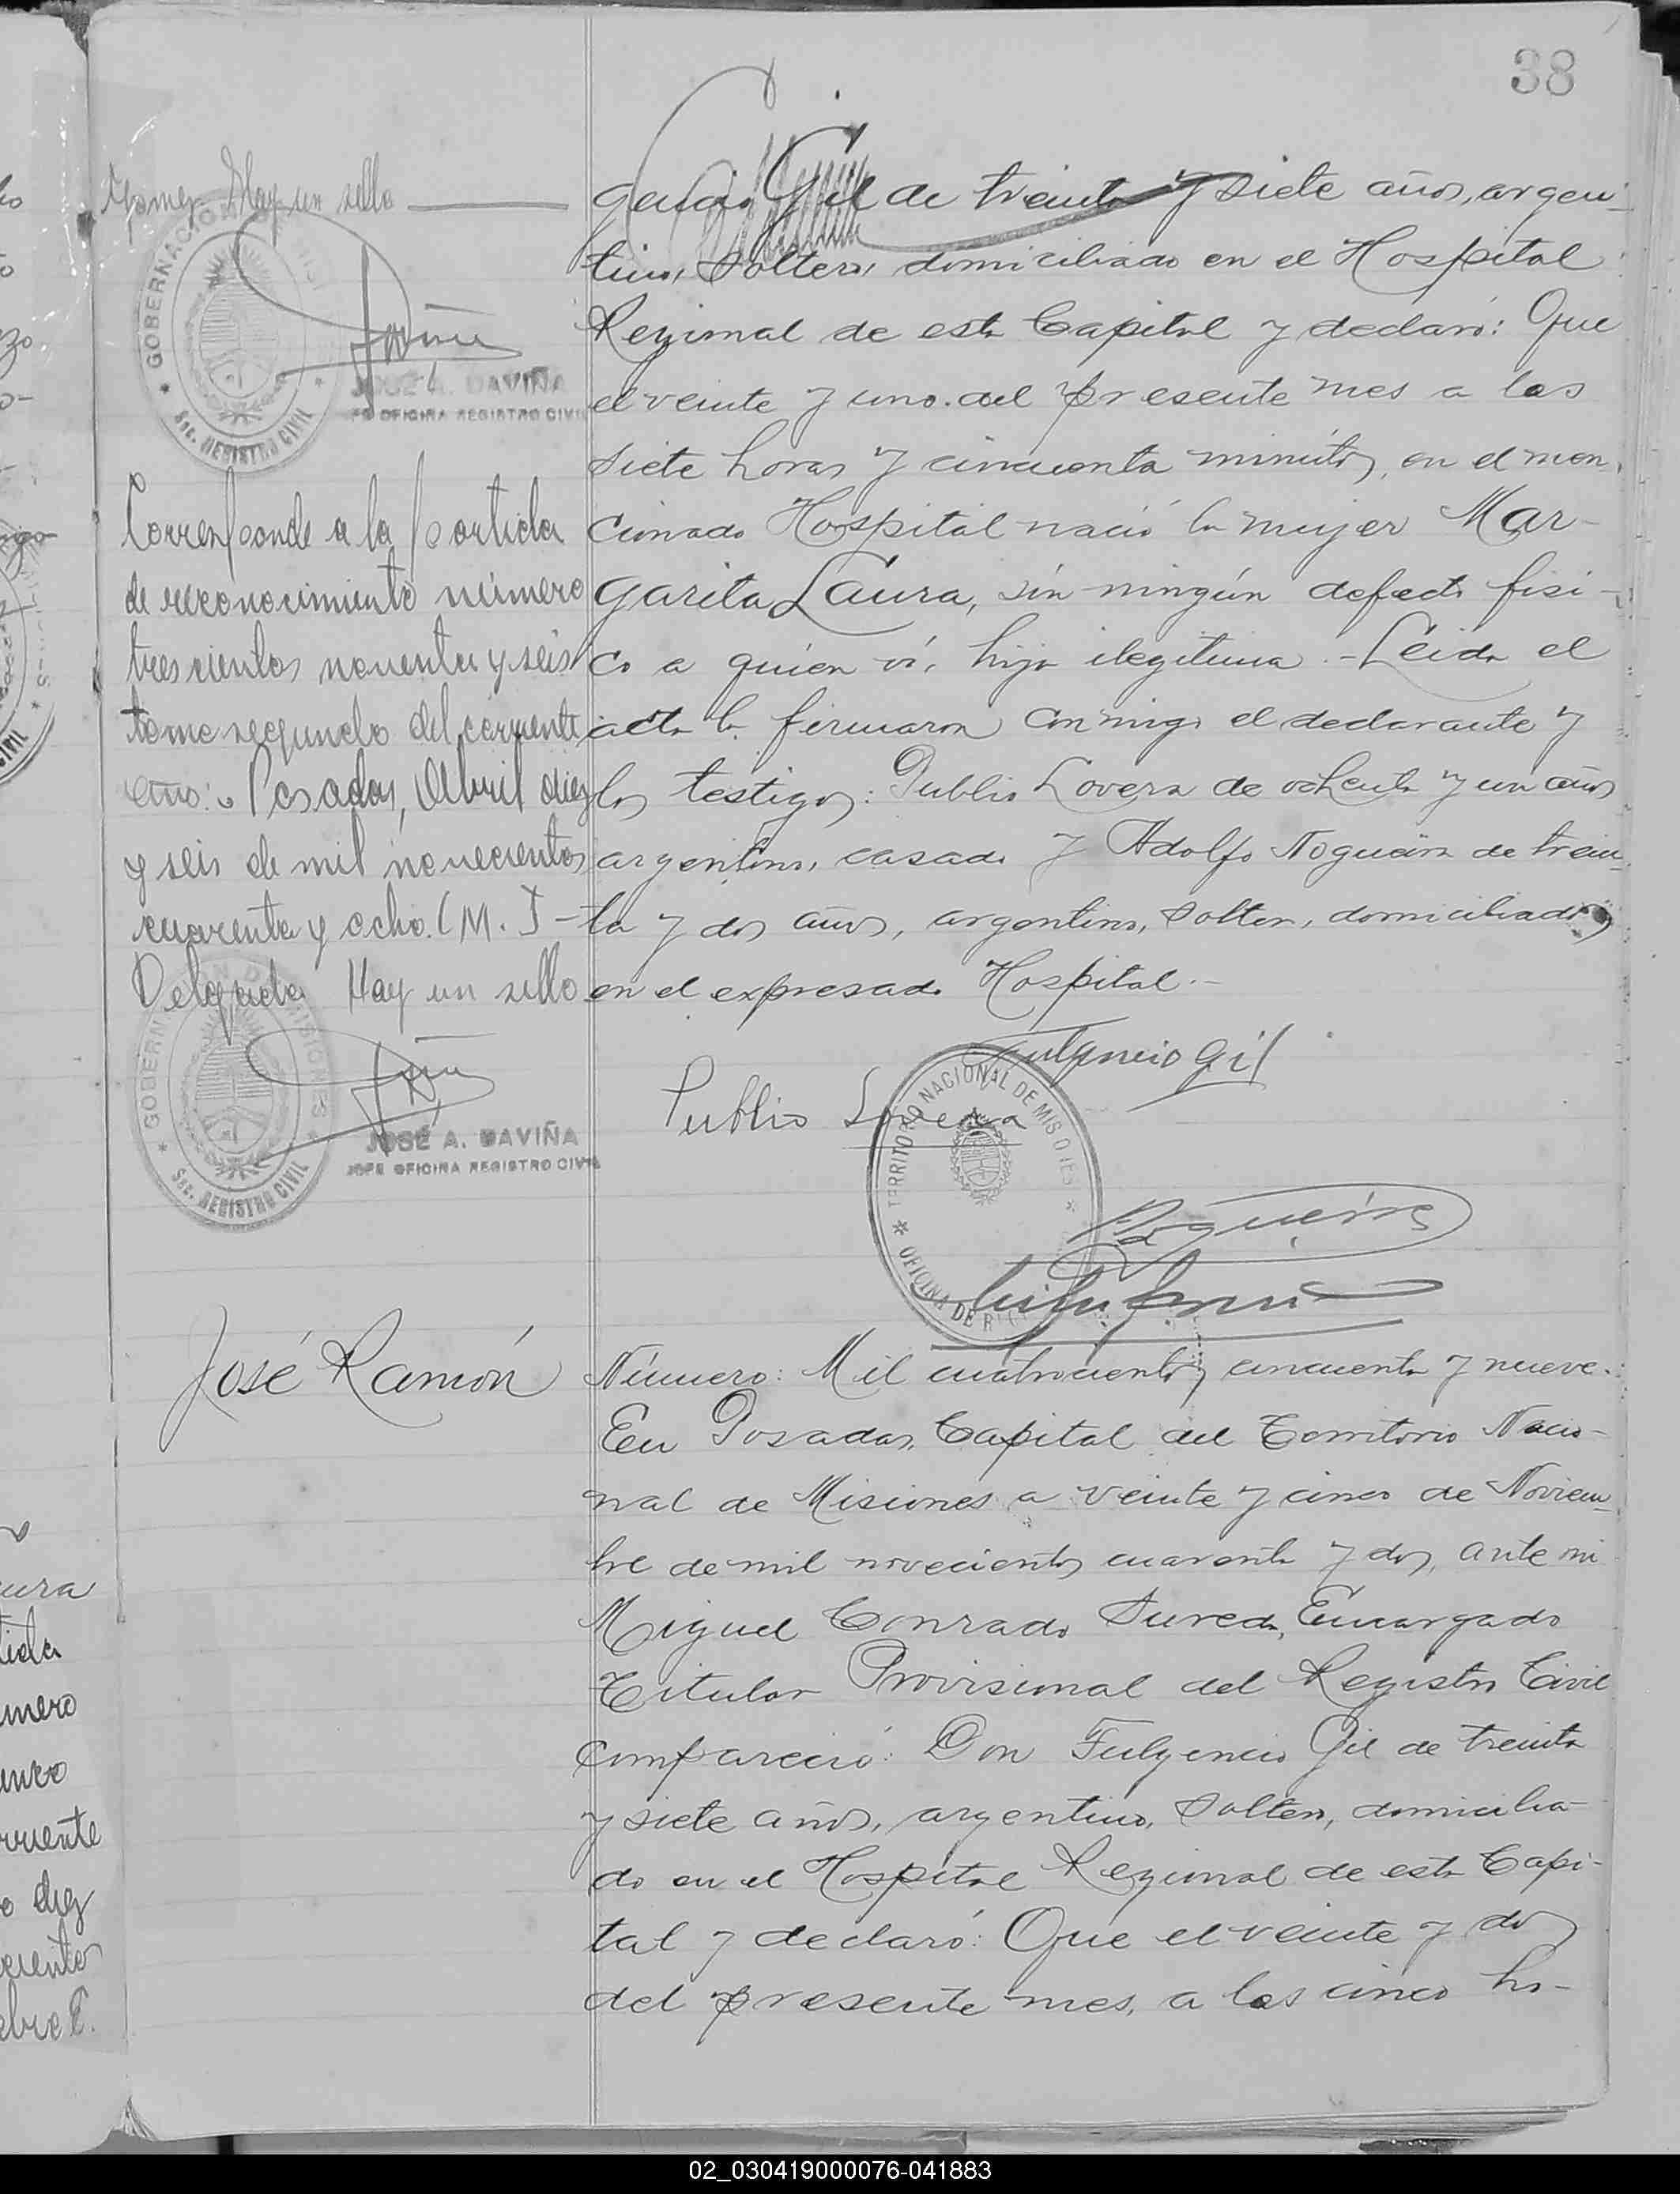 38
Gomez Hay un sello
GOBERNACION
Sec. REGISTRO CIVIL
JOSÉ A. DAVIÑA
JEFE OFICINA REGISTRO CIVIL
Corresponde a la partida
de reconocimiento número
trescientos noventa y seis
tomo segundo del corriente
año: Posadas, Abril diez
y seis de mil novecientos
cuarenta y ocho. (M.)
Delgado Hay un sello
GOBERNACION DE MISIONES
Sec. REGISTRO CIVIL
JOSÉ A. DAVIÑA
JEFE OFICINA REGISTRO CIVIL
gencio Gil de treinta y siete años, argen-
tino, soltero, domiciliado en el Hospital
Regional de esta Capital y declaró: Que
el veinte y uno del presente mes a las
siete horas y cincuenta minutos, en el men-
cionado Hospital nació la mujer Mar-
garita Laura, sin ningún defecto físi-
co a quien ví, hija ilegitima.- Leida el
acta la firmaron conmigo el declarante y
los testigos: Publio Lovera de ochenta y un años
argentino, casado y Adolfo Nogueira de trein-
ta y dos años, argentino, soltero, domiciliados
en el expresado Hospital.-
Fulgencio Gil
Publio Lovera
TERRITORIO NACIONAL DE MISIONES
OFICINA DE
Nogueira
José Ramón
Número: Mil cuatrocientos cincuenta y nueve.
En Posadas, Capital del Territorio Nacio-
nal de Misiones a veinte y cinco de Noviem-
bre de mil novecientos cuarenta y dos, ante mi
Miguel Conrado Sureda, Encargado
Titular Provisional del Registro Civil
compareció: Don Fulgencio Gil de treinta
y siete años, argentino, soltero, domicilia-
do en el Hospital Regional de esta Capi-
tal y declaró: Que el veinte y dos
del presente mes, a las cinco ho-
mero
rriente
diez
02_030419000076-041883